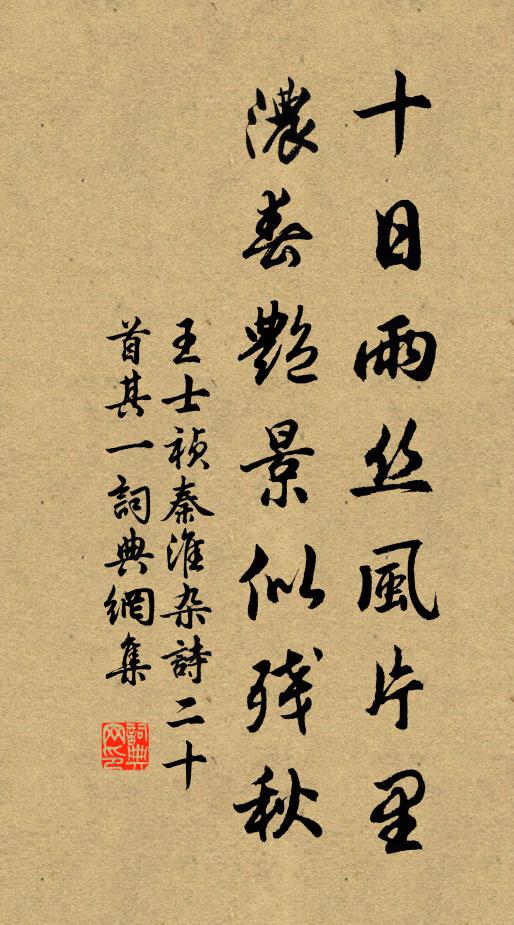 十日雨丝風片里
濃春艷景似残秋
王士祯秦淮杂詩二十
首其一詞典網集
詞典
网印